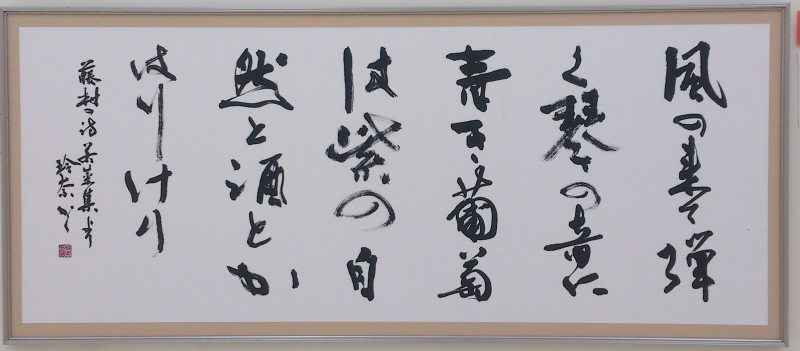 風の来て弾
く琴の音に
青き葡萄
は紫の自
然の酒とか
はりけり
藤村の詩 若菜集より
玲奈書